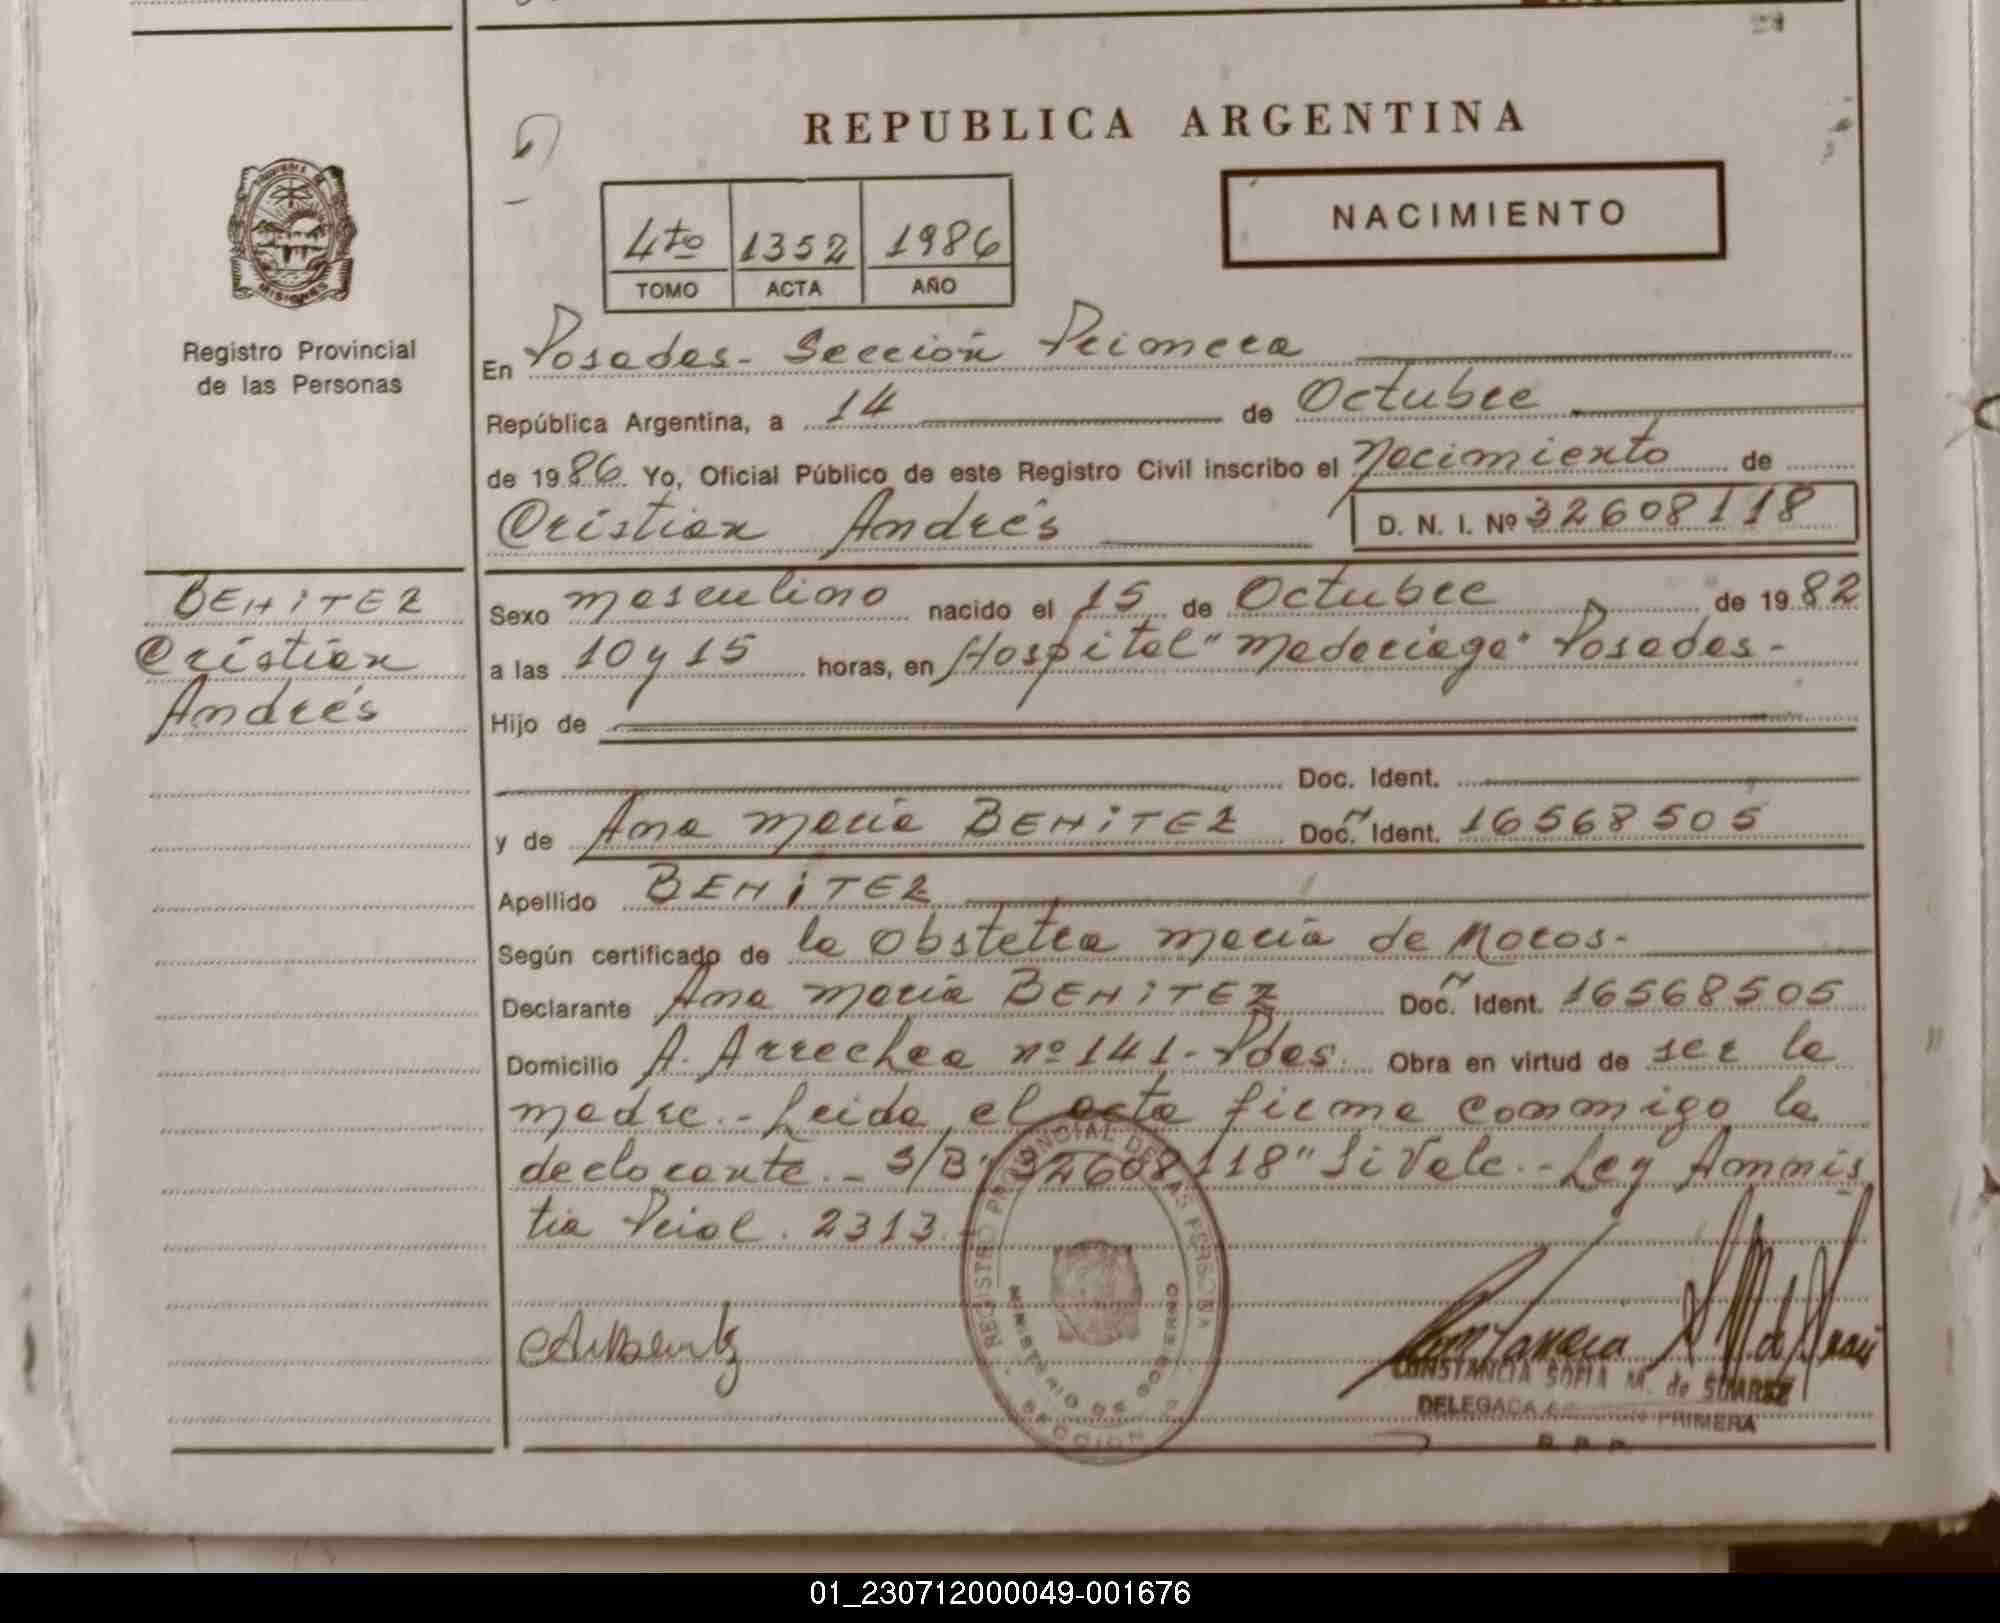 REPUBLICA ARGENTINA
NACIMIENTO
4to 1352 1986
TOMO ACTA AÑO
MISIONES
Registro Provincial
de las Personas
En Posadas - Sección Primera
República Argentina, a 14 de Octubre
de 1986. Yo, Oficial Público de este Registro Civil inscribo el Nacimiento de
Cristian Andrés D. N. I. Nº 32608118
BENITEZ
Cristian
Andrés
Sexo masculino nacido el 15 de Octubre de 1982
a las 10 y 15 horas, en Hospital "Madariaga" Posadas -
Hijo de
Doc. Ident.
y de Ana María BENITEZ Doc. Ident. 16568505
Apellido BENITEZ
Según certificado de la Obstetra María de Moros -
Declarante Ana María BENITEZ Doc. Ident. 16568505
Domicilio A. Arrechea nº 141 - Pdas. Obra en virtud de ser la
madre. - Leida el acta firma conmigo la
declarante. - S/B "32608118" Si Vale. - Ley Amnis
tia Pcial. 2313. -
REGISTRO PROVINCIAL DE LAS PERSONAS
MINISTERIO DE GOBIERNO
SECCION
CONSTANCIA SOFIA M. de SUAREZ
DELEGADA SECCION PRIMERA
R. P. P.
01_230712000049-001676